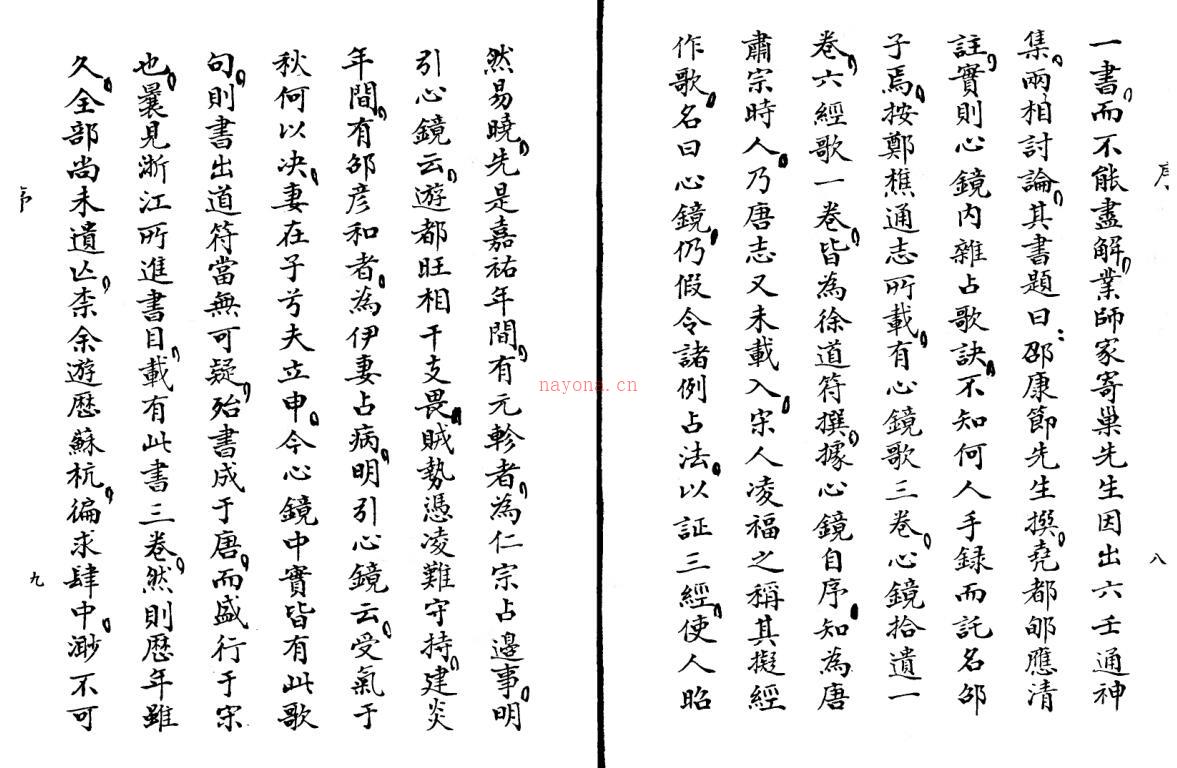 序
八
一書而不能盡解業師家寄巢先生因出六壬通神
集兩相討論其書題曰邵康節先生撰堯都郇應清
註實則心鏡內雜占歌訣不知何人手録而託名邵
子焉按鄭樵通志所載有心鏡歌三卷心鏡拾遺一
卷六經歌一卷皆為徐道符撰據心鏡自序知為唐
肅宗時人乃唐志又未載入宋人凌福之稱其擬經
作歌名曰心鏡仍假令諸例占法以証三經使人昭
然易曉先是嘉祐年間有元軫者為仁宗占邊事明
引心鏡云遊都旺相干支畏賊勢憑凌難守持建炎
年間有邵彥和者為伊妻占病明引心鏡云受氣于
秋何以决妻在子兮夫立申今心鏡中實皆有此歌
句則書出道符當無可疑殆書成于唐而盛行于宋
也曩見浙江所進書目載有此書三卷然則歷年雖
久全部尚未遺亾柰余遊歷蘇杭徧求肆中渺不可
序
九
nayona.cn